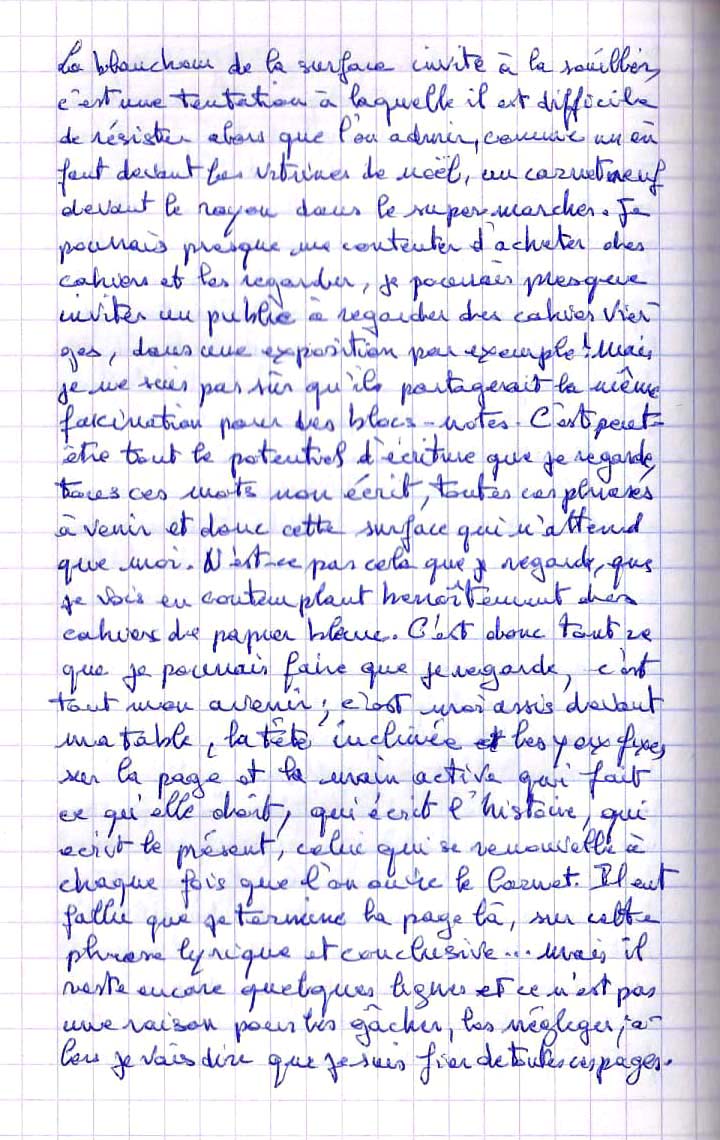 La blancheur de la surface invite à la souiller,
c'est une tentation à laquelle il est difficile
de résister alors que l'on admire, comme on en
fait devant les vitrines de noël, un carnet neuf
devant le rayon dans le supermarcher. Je
pourrais presque me contenter d'acheter des
cahiers et les regarder, je pourrais presque
inviter un public à regarder des cahiers vier-
ges, dans une exposition par exemple! Mais
je ne suis pas sûr qu'ils partagerait la même
fascination pour les blocs-notes. C'est peut-
être tout le potentiel d'écriture que je regarde,
tous ces mots non écrit, toutes ces phrases
à venir et donc cette surface qui n'attend
que moi. N'est-ce pas cela que je regarde, que
je vois en contemplant benoîtement des
cahiers de papier blanc. C'est donc tout ce
que je pourrais faire que je regarde, c'est
tout mon avenir; c'est moi assis devant
ma table, la tête inclinée et les yeux fixes
sur la page et la main active qui fait
ce qu'elle doit, qui écrit l'histoire, qui
écrit le présent, celui qui se renouvelle à
chaque fois que l'on ouvre le carnet. Il eut
fallu que je termine la page là, sur cette
phrase lyrique et conclusive... mais il
reste encore quelques lignes et ce n'est pas
une raison pour les gâcher, les négliger, a-
lors je vais dire que je suis fier de toutes ces pages.